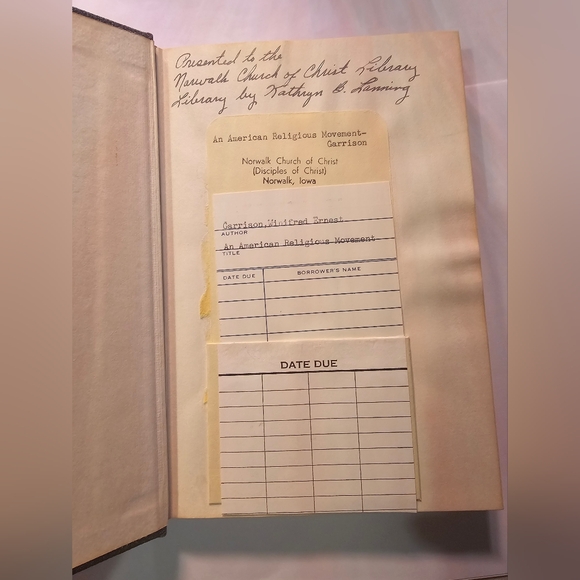 Presented to the
Norwalk Church of Christ Library
Library by Kathryn B. Lanning
An American Religious Movement-
Garrison
Norwalk Church of Christ
(Disciples of Christ)
Norwalk, Iowa
Garrison,Winifred Ernest
AUTHOR
An American Religious Movement
TITLE
DATE DUE BORROWER'S NAME
DATE DUE